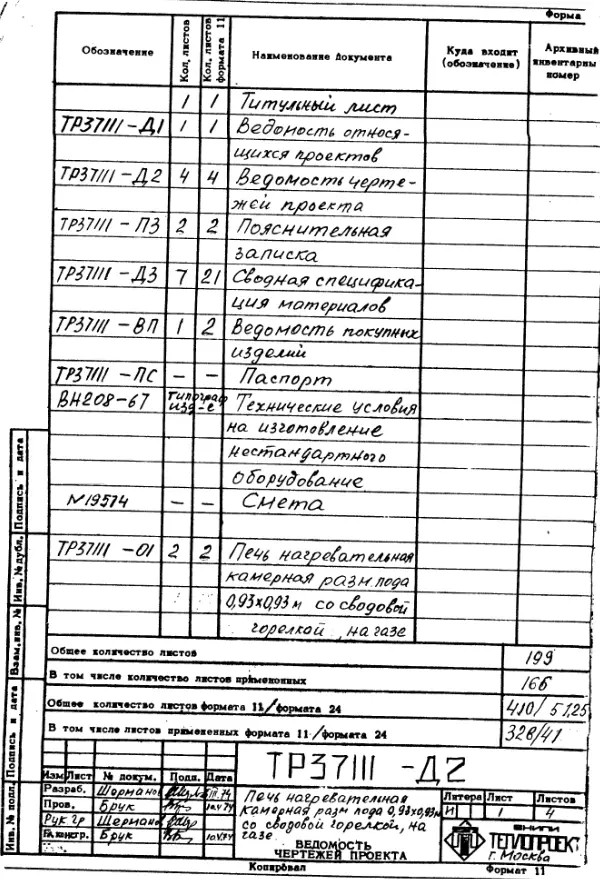 Форма
Обозначение Кол. листов Кол. листов формата 11 Наименование документа Куда входит (обозначение) Архивный инвентарны номер
1 1 Титульный лист
ТР37111-Д1 1 1 Ведомость относя-
щихся проектов
ТР37111-Д2 4 4 Ведомость черте-
жей проекта
ТР37111-ПЗ 2 2 Пояснительная
записка
ТР37111-Д3 7 21 Сводная специфика-
ция материалов
ТР37111-ВП 1 2 Ведомость покупных
изделий
ТР37111-ПС — — Паспорт
ВН208-67 типограф изд-е Технические условия
на изготовление
нестандартного
оборудование
N19574 — — Смета
ТР37111-01 2 2 Печь нагревательная
камерная разм.пода
0,93х0,93м со сводовой
горелкой, на газе
Общее количество листов 199
В том числе количество листов примененных 166
Общее количество листов формата 11/формата 24 410/51,25
В том числе листов примененных формата 11/формата 24 328/41
Инв. № подл. Подпись и дата Взам. инв. № Инв. № дубл. Подпись и дата
ТР37111-Д2
Изм Лист № докум. Подп. Дата
Разраб. Шерманов
Пров. Брук 10.V.74
Рук гр Шерманов
Гл. констр. Брук 10.V.74
Печь нагревательная
камерная разм пода 0,93х0,93м
со сводовой горелкой, на
газе
ВЕДОМОСТЬ
ЧЕРТЕЖЕЙ ПРОЕКТА
Литера Лист Листов
И 1 4
ВНИПИ
ТЕПЛОПРОЕКТ
г. Москва
Копировал Формат 11